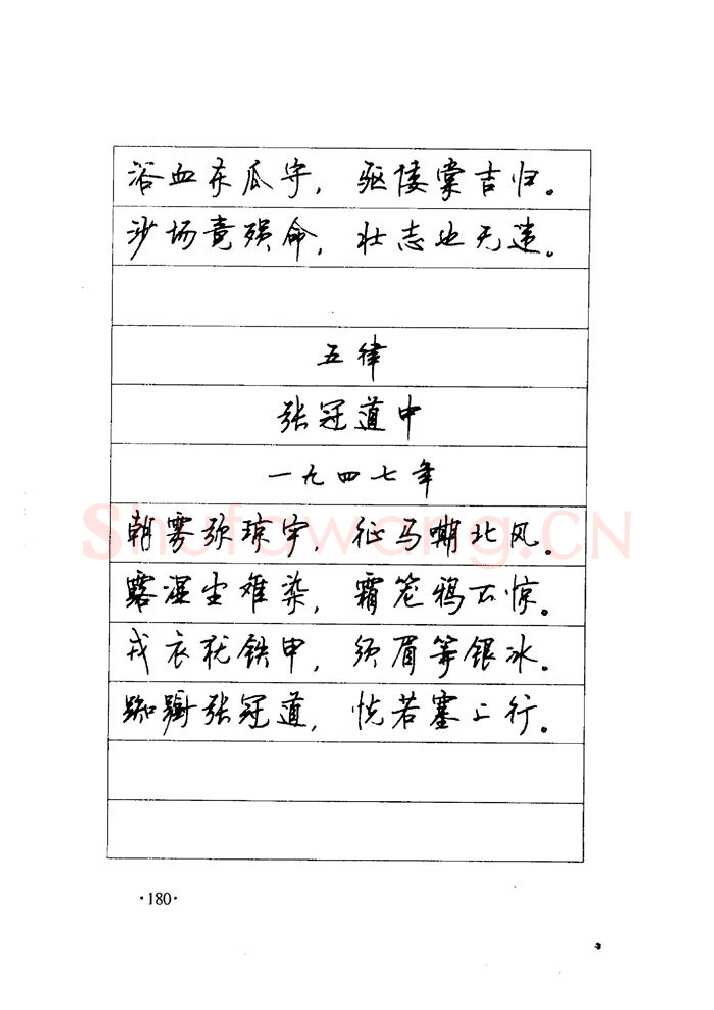 浴血东瓜守，驱倭棠吉归。
沙场竟殒命，壮志也无违。
五律
张冠道中
一九四七年
朝雾弥琼宇，征马嘶北风。
露湿尘难染，霜笼鸦不惊。
戎衣犹铁甲，须眉等银冰。
踟蹰张冠道，恍若塞上行。
·180·
Shufawang.CN